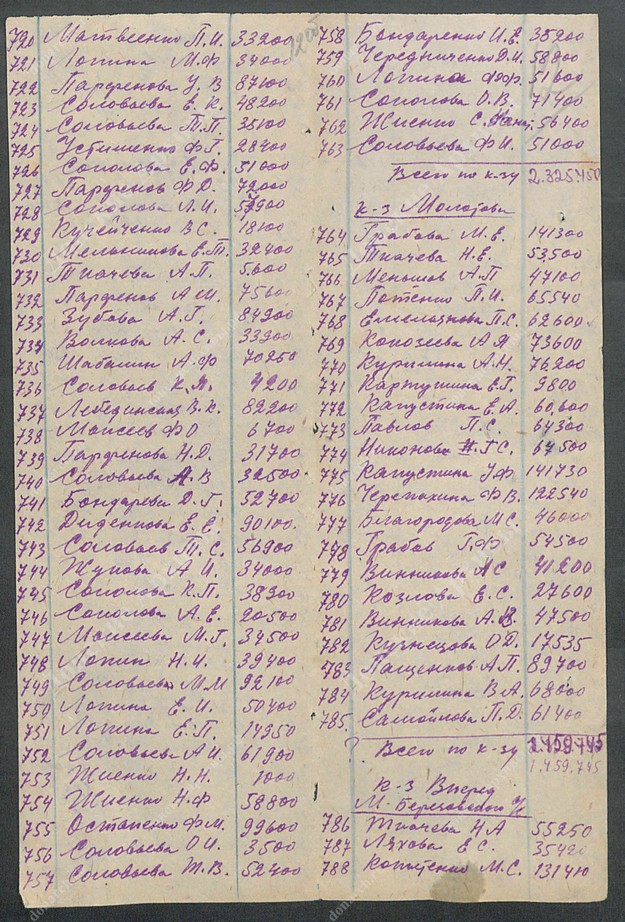 720 Матвеенко П.И. 33200
721 Лопина М.Ф. 39000
722 Парфенова У.В 87100
723 Соловьева Е.К. 48200
724 Соловьева Т.П. 35100
725 Устименко Ф.Г. 28400
726 Соколова Е.Ф. 51000
727 Парфенов Ф.D. 72000
728 Соколова Л.И.
729 Кучейченко В.С. 18100
730 Мельникова Е.Т. 32400
731 Ткачева А.П. 5.600
732 Парфенов А.И. 75600
733 Зубова А.Г. 84200
734 Волкова А.С. 33200
735 Шабалин А.Ф 70250
736 Соловьев К.Я. 4200
737 Лебединская В.К. 82200
738 Моисеев ФD 6700
739 Парфенова Н.D. 31700
740 Соловьева А.В 32500
741 Бондарева D.Г. 52700
742 Диденкова Е.Е. 90100.
743 Соловьев Т.С. 56900
744 Жукова А.И. 34000
745 Соколова К.П. 38200
746 Соколова А.Е. 20500
747 Моисеева М.Г 34500
748 Лопин Н.И. 39400
749 Соловьева М.М 92100
750 Лопина Е.И. 50400
751 Лопина Е.П. 14950
752 Соловьева А.И. 61900
753 Жиенко Н.Н. 1000
754 Жиенко Н.Ф 58800
755 Остапенко Ф.М. 99600
756 Соловьева О.И. 3500
757 Соловьева Т.В. 52400
758 Бондаренко И.Е. 35200
759 Чередниченко D.И. 58800
760 Лопина Ф.Ф. 51600
761 Соколова О.В. 71400
762 Жиенко С. 56400
763 Соловьева Ф.И. 51000
Всего по к-зу 2.325.450
к-з Молотова
764 Грабова М.Е. 141300
765 Ткачева Н.Е. 53.500
766 Меньшов А.П 47100
767 Потенко П.И. 65540
768 Емельянова П.С. 62600
769 Конозеева А.Я 73600
770 Курилина А.Н. 76200
771 Картушина Е.Г. 9800
772 Капустина Е.А. 60,600
773 Павлов П.С. 64300
774 Никонова Г.С. 64500
775 Капустина У.Ф. 141730
776 Черепахина Ф.В. 122540
777 Благородова М.С. 46000
778 Грабов Г.Ф. 54500
779 Винникова А.С 41200
780 Козлова Е.С. 27600
781 Винникова А. 47500
782 Кузнецова О.D. 17535
783 Пащенков А.П. 89700
784 Курилина В.А. 68000
785. Самойлова П.D. 61400
Всего по к-зу 1.459.745
1.459.745
к-з Вперед
М-Березовского
786 Ткачева Н.А 55250
787 Ляхова Е.С. 35420
788 М.С. 131410